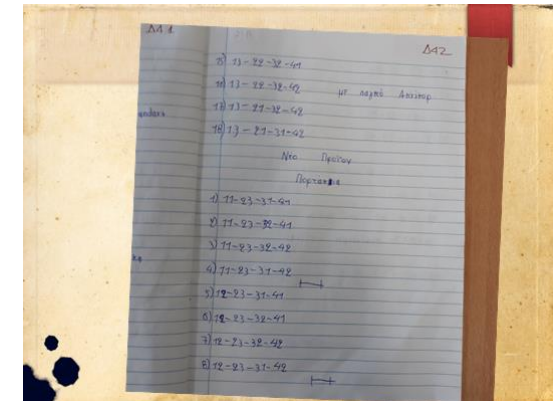 ΔΔ 1
Δ42
15) 13-22-32-41
16) 13-22-32-42
με χαρτί
17) 13-21-32-42
18) 13-21-31-42
Νέο Προϊόν
1) 11-23-31-41
2) 11-23-32-41
3) 11-23-32-42
4) 11-23-31-42
5) 12-23-31-41
6) 12-23-32-41
7) 12-23-32-42
8) 12-23-31-42